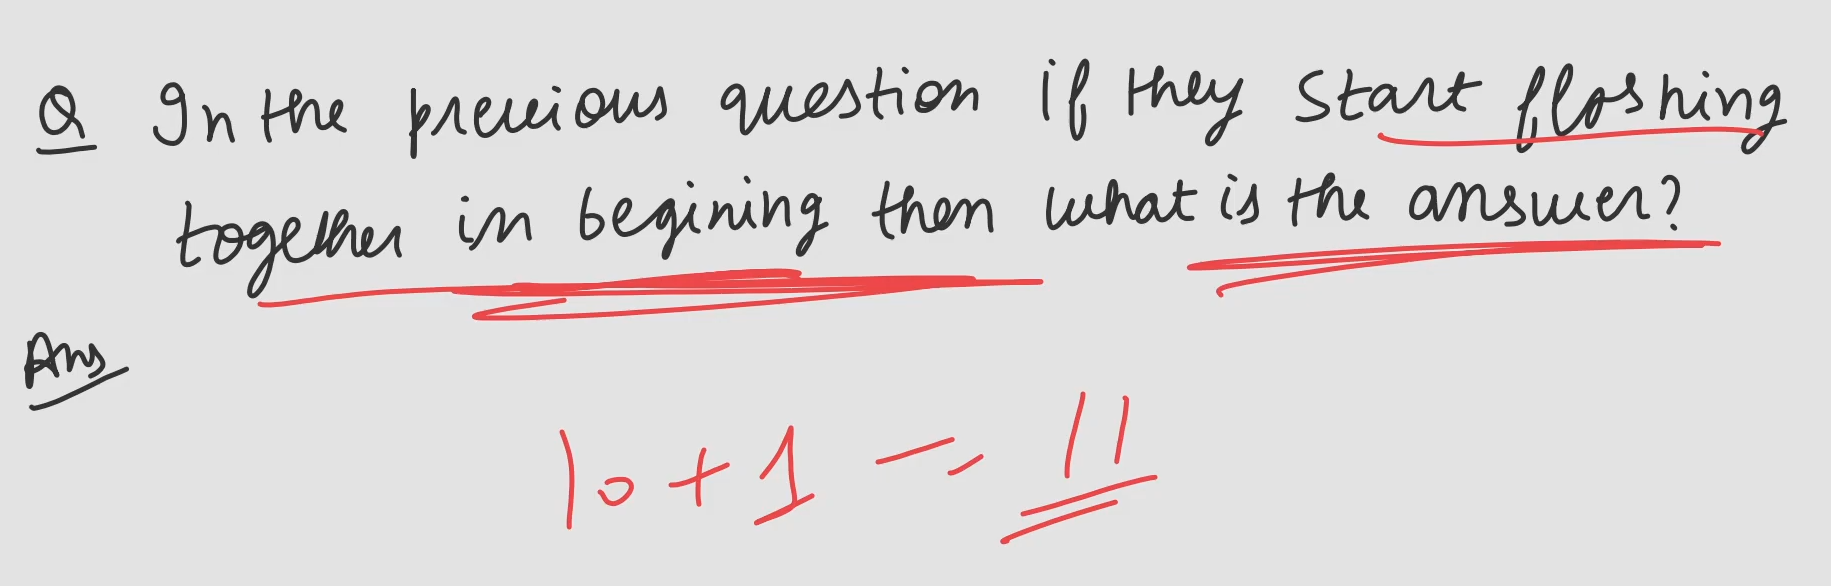 Q In the previous question if they start flashing
together in begining then what is the answer?
Ans
10 + 1 = 11